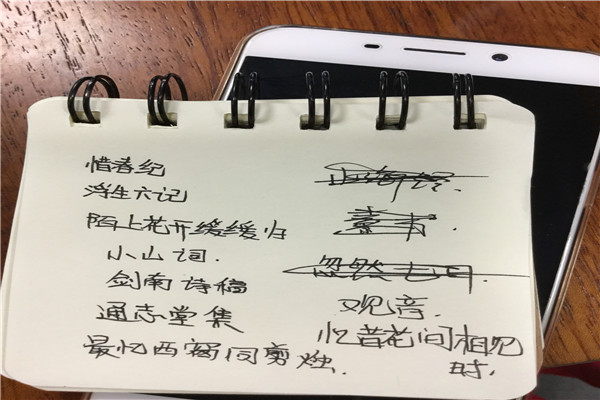 惜春纪
浮生六记
陌上花开缓缓归
小山词.
剑南诗稿
通志堂集
最忆西窗同剪烛.
山海经.
忽然七日.
观音.
忆昔花间相见
时.